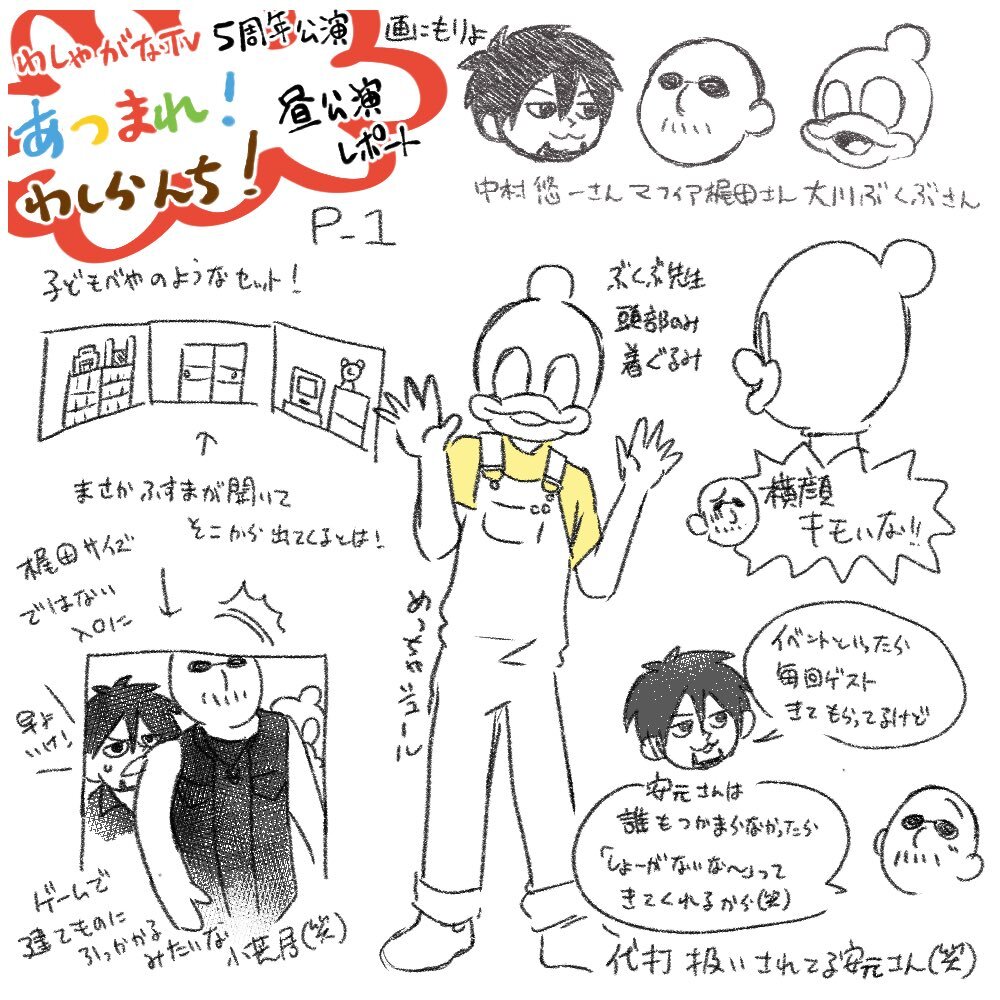 わしゃがなTV 5周年公演
あつまれ!
わしらんち!
昼公演
レポート
P-1
画にもりよ
中村悠一さん マフィア梶田さん 大川ぶくぶさん
子どもべやのようなセット!
↑
まさかふすまが開いて
そこから出てくるとは!
ぶくぶ先生
頭部のみ
着ぐるみ
横顔
キモいな!!
梶田サイズ
ではない
入口に
早よ
いけ!
ゲームで
建てものに
ひっかかる
みたいな
小芝居(笑)
イベントといったら
毎回ゲスト
きてもらってるけど
安元さんは
誰もつかまらなかったら
「しょーがないな〜」って
きてくれるから(笑)
代打扱いされてる安元さん(笑)